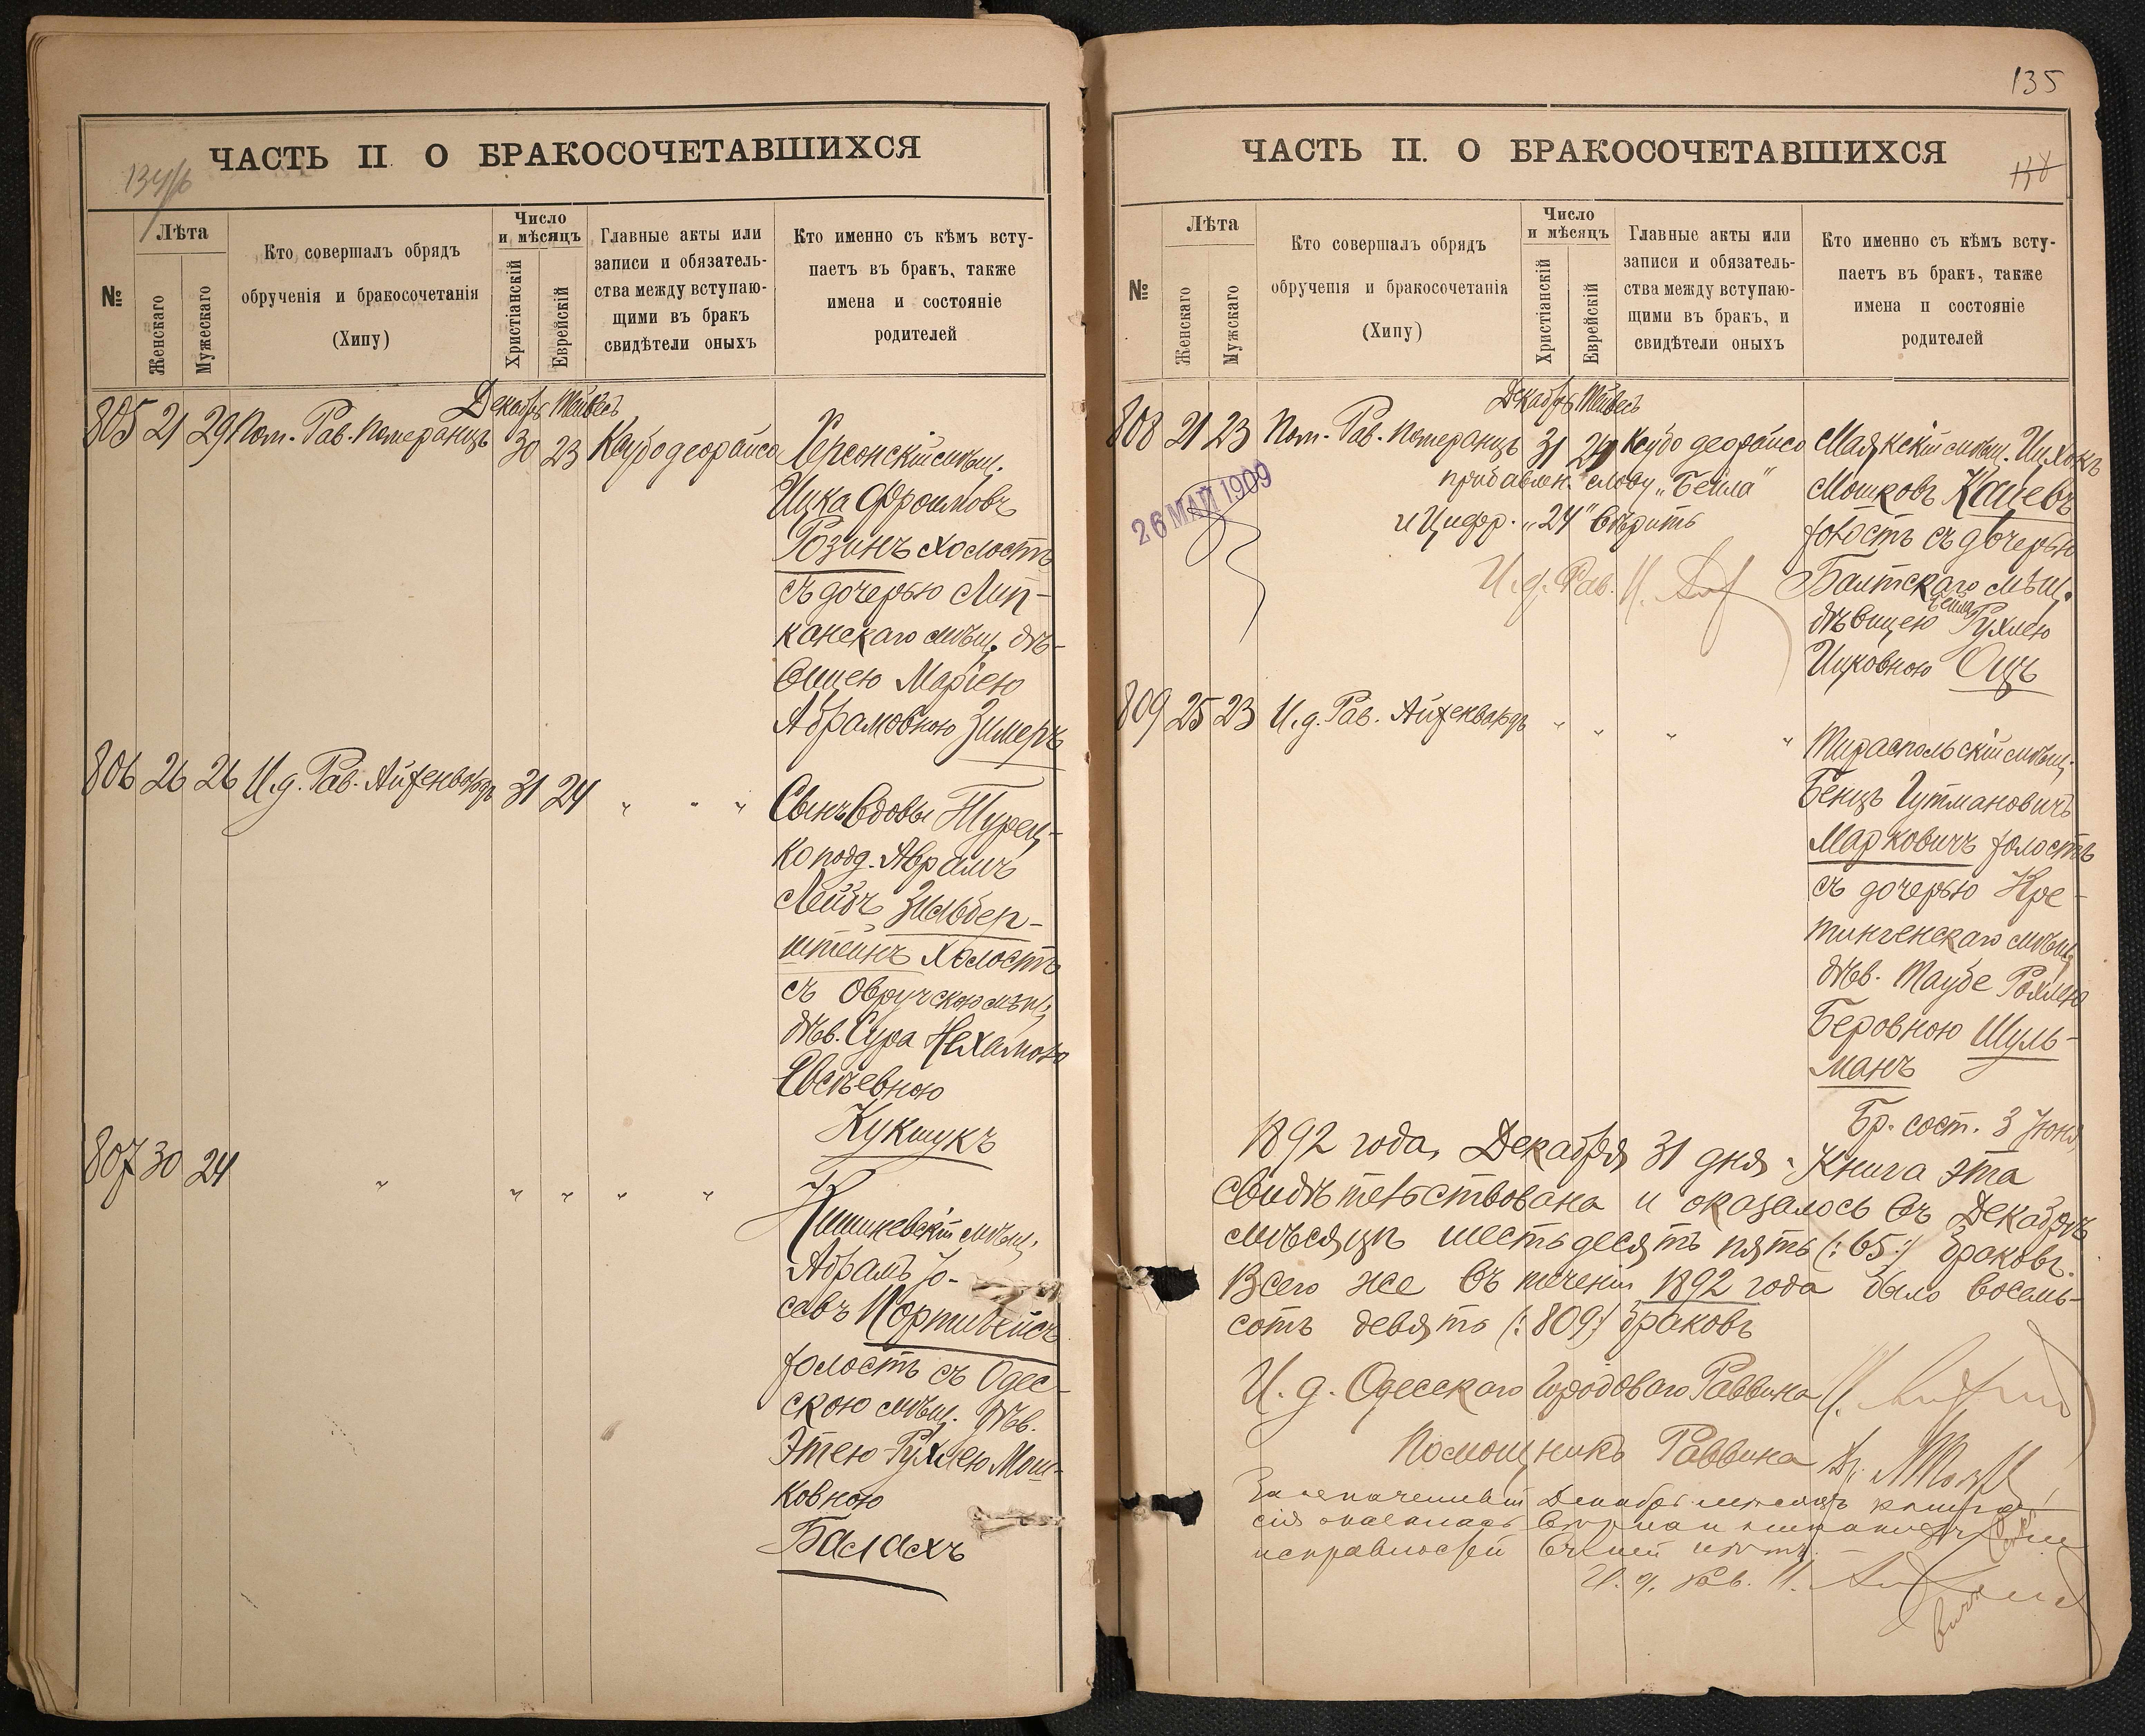 134/б
ЧАСТЬ II О БРАКОСОЧЕТАВШИХСЯ
№
Лѣта
Женскаго
Мужескаго
Кто совершалъ обрядъ
обрученія и бракосочетанія
(Хипу)
Число
и мѣсяцъ
Христіанскій
Еврейскій
Главные акты или
записи и обязатель-
ства между вступаю-
щими въ бракъ
свидѣтели оныхъ
Кто именно съ кѣмъ всту-
паетъ въ бракъ, также
имена и состояніе
родителей
Декабрь Тейвесъ
805 21 29 Пом. Рав. Померанцъ 30 23 Ксубо деорайсо Херсонскій мѣщ.
Ицка Фроимовъ
Розинъ холостъ
съ дочерью Лип-
канскаго мѣщ. дѣ-
вицею Маріею
Абрамовною Зимеръ
806 26 26 И. д. Рав. Айзенвардъ 31 24 " " " Сынъ вдовы Турец-
ко подд. Аврамъ
Лейбъ Зильбер-
штейнъ холостъ
съ Овручскою мѣщ.
дѣв. Сура Нехамою
Евсѣевною
Кукшукъ
807 30 24 " " " " " Кишиневскій мѣщ.
Абрамъ Іо-
севъ Портивейсъ
холостъ съ Одес-
скою мѣщ. дѣв.
Этею-Рухлею Мош-
ковною
Балахъ
135
ЧАСТЬ II. О БРАКОСОЧЕТАВШИХСЯ
138
№
Лѣта
Женскаго
Мужскаго
Кто совершалъ обрядъ
обрученія и бракосочетанія
(Хипу)
Число
и мѣсяцъ
Христіанскій
Еврейскій
Главные акты или
записи и обязатель-
ства между вступаю-
щими въ бракъ, и
свидѣтели оныхъ
Кто именно съ кѣмъ всту-
паетъ въ бракъ, также
имена и состояніе
родителей
Декабрь Тейвесъ
808 21 23 Пом. Рав. Померанцъ 31 24 Ксубо деорайсо Маякскій мѣщ. Ицхокъ
Мошковъ Кацевъ
холостъ съ дочерью
Балтскаго мѣщ.
дѣвицею Бейла Рухлею
Ицковною Оцъ
26 МАЙ 1909
прибавлен. слову „Бейла"
и Цифр. „24" вѣрить
И. д. Рав.
809 25 23 И. д. Рав. Айзенвардъ " " " " Тираспольскій мѣщ.
Бенцъ Гутмановичъ
Марковичъ холостъ
съ дочерью Кре-
тингенскаго мѣщ.
дѣв. Таубе Рохлею
Беровною Шуль-
манъ
Бр. сост. 3 Іюня
1892 года, Декабря 31 дня. Книга эта
свидѣтельствована и оказалось въ Декабрѣ
мѣсяцѣ шестьдесятъ пять (:65:) браковъ.
Всего же въ теченіи 1892 года было восемь-
сотъ девять (:809:) браковъ
И. д. Одесскаго Городоваго Раввина
Помощникъ Раввина Др.
Декабрь мѣсяцъ книга
сія оказалась
исправностей въ ней нѣтъ.
И. д. Рав.